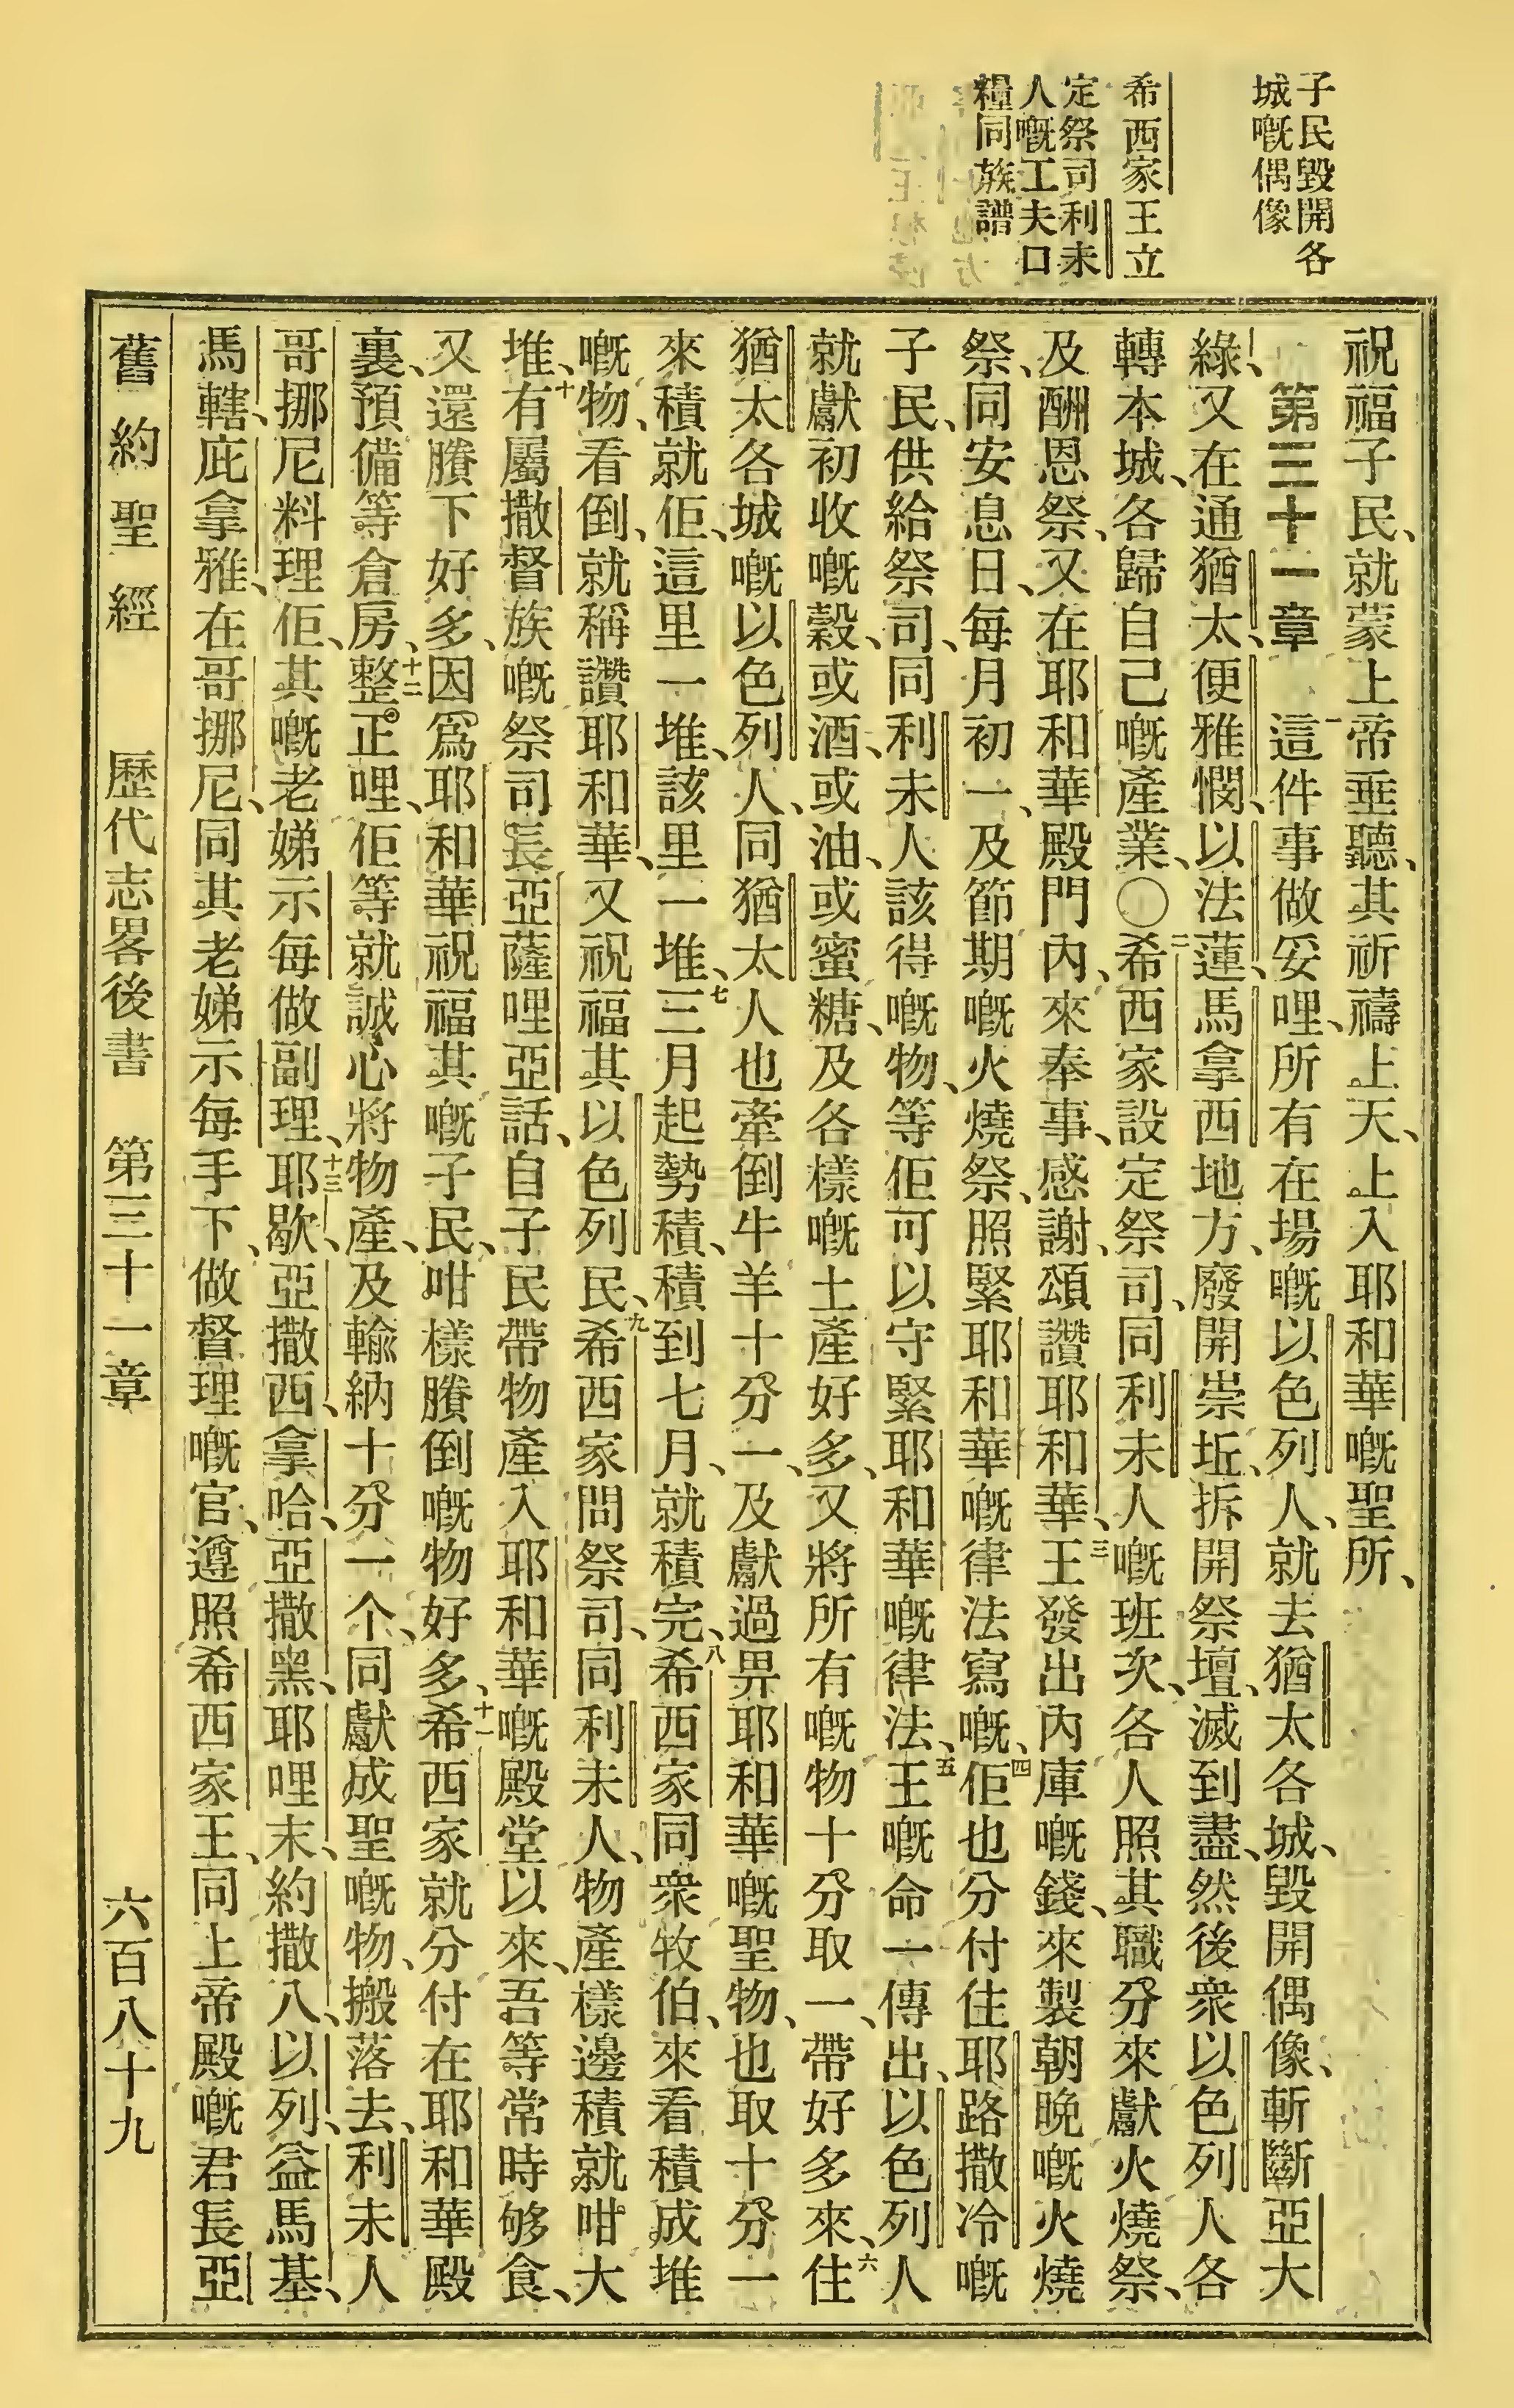 子民毀開各
城嘅偶像
希西家王立
定祭司利未
人嘅工夫口
糧同族譜
祝福子民、就蒙上帝垂聽、其祈禱上天、上入耶和華嘅聖所、
第三十一章 一這件事做妥哩、所有在場嘅以色列人、就去猶太各城、毀開偶像、斬斷亞大
綠、又在通猶太、便雅憫、以法蓮、馬拿西地方、廢開崇坵、拆開祭壇、滅到盡、然後衆以色列人各
轉本城、各歸自己嘅產業、〇二希西家設定祭司、同利未人嘅班次、各人照其職分來獻火燒祭、
及酬恩祭、又在耶和華殿門內、來奉事、感謝、頌讚耶和華、三王發出內庫嘅錢、來製朝晚嘅火燒
祭、同安息日、每月初一、及節期嘅火燒祭、照緊耶和華嘅律法寫嘅、四佢也分付住耶路撒冷嘅
子民、供給祭司、同利未人該得嘅物、等佢可以守緊耶和華嘅律法、五王嘅命一傳出、以色列人
就獻初收嘅穀、或酒、或油、或蜜糖、及各樣嘅土產好多、又將所有嘅物十分取一、帶好多來、六住
猶太各城嘅以色列人、同猶太人也牽倒牛羊十分一、及獻過畀耶和華嘅聖物、也取十分一
來積就佢、這里一堆、該里一堆、七三月起勢積、積到七月、就積完、八希西家同衆牧伯、來看積成堆
嘅物、看倒、就稱讚耶和華、又祝福其以色列民、九希西家問祭司、同利未人、物產樣邊積就咁大
堆、十有屬撒督族嘅祭司長亞薩哩亞話、自子民帶物產入耶和華嘅殿堂以來、吾等常時够食、
又還賸下好多、因爲耶和華祝福其嘅子民、咁樣賸倒嘅物好多、十一希西家就分付在耶和華殿
裏、預備等倉房、十二整正哩、佢等就誠心將物產、及輸納十分一个、同獻成聖嘅物、搬落去、利未人
哥挪尼料理佢、其嘅老娣示每做副理、十三耶歇、亞撒西、拿哈、亞撒黑、耶哩末、約撒八、以列、益馬基、
馬轄、庇拿雅、在哥挪尼、同其老娣示每手下、做督理嘅官、遵照希西家王、同上帝殿嘅君長亞
舊約聖經 歷代志畧後書 第三十一章 六百八十九